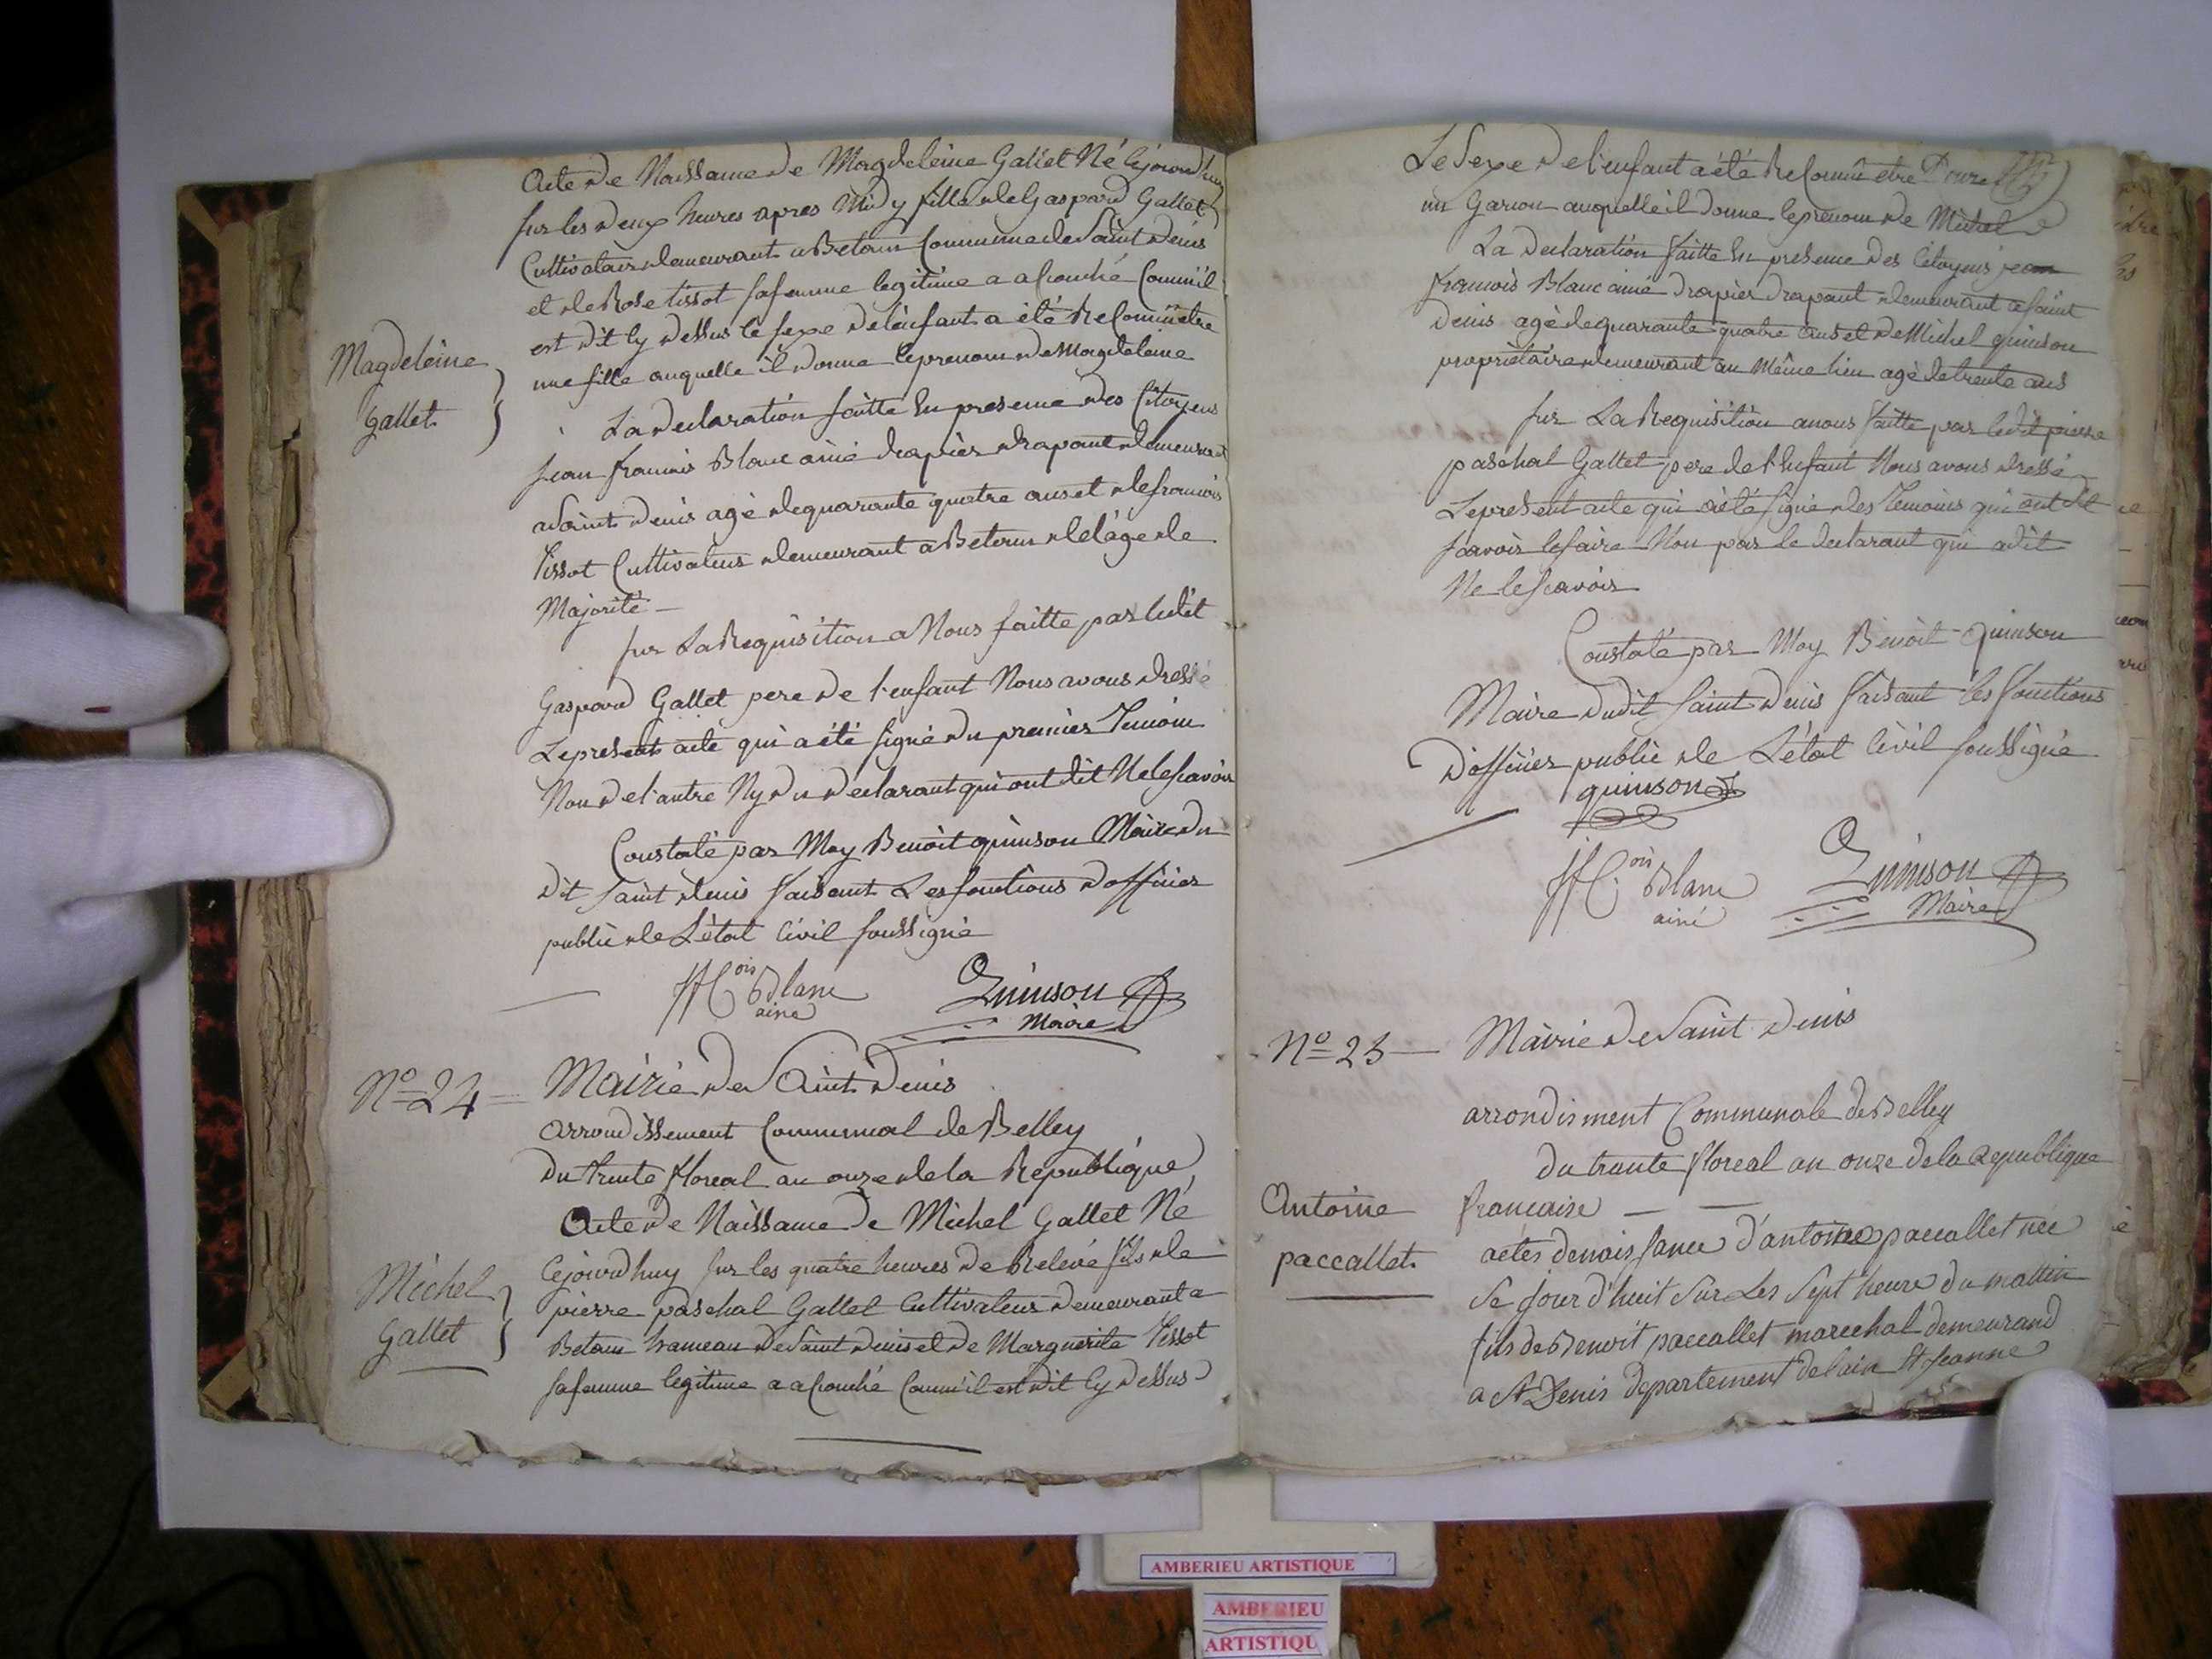 Acte de Naissance de Magdeleine Gallet Né Cejourdhuy
sur les deux heures apres Midy fille de Gaspard Gallet
Cultivateur demeurant a Betam Commune de Saint denis
et de Rose tissot sa femme legitime a acouché Comme il
est dit Cy dessus le sexe de l'enfant a été Reconnu être
une fille auquelle il donne le prenom de Magdeleine
Magdeleine
Gallet
La declaration faitte En presence des Citoyens
jean francois Blanc ainé drapier drapant demeurant
a Saint denis agé de quarante quatre ans et de francois
Tissot Cultivateur demeurant a Betam de l'âge de
Majorité
sur La Requisition a Nous faitte par ledit
Gaspard Gallet pere de l'enfant Nous avons dressé
Le present acte qui a été signé du premier Temoin
Non de l'autre Ny du declarant qui ont dit Ne le scavoir
Constaté par Moy Benoit quinson Maire du
dit saint denis faisant Les fonctions d'officier
public de L'état Civil soussigné
JFCois Blanc
ainé
Quinson
Maire
No 24 = Mairie de Saint Denis
arrondissement Communal de Belley
Du trente floreal an onze de la Republique
Acte de Naissance de Michel Gallet Né
Michel
Gallet
Cejourdhuy sur les quatre heures de Relevé fils de
pierre paschal Gallet Cultivateur demeurant a
Betam hameau de Saint denis et de Marguerite Tissot
sa femme legitime a acouché Comme il est dit Cy dessus
Le Sexe de l'enfant a été Reconnu etre
un Garcon auquelle il donne le prenom de Michel
La declaration faitte En presence des Citoyens jean
francois Blanc ainé drapier drapant demeurant a saint
denis agé de quarante quatre ans et de Michel quinson
propriétaire demeurant au Même lieu agé de trente ans
sur La Requisition a nous faitte par ledit pierre
paschal Gallet pere de l'Enfant Nous avons dressé
Le present acte qui a été signé des Temoins qui ont dit
scavoir le faire Non pas le declarant qui a dit
Ne le scavoir
Constaté par Moy Benoit quinson
Maire dudit saint denis faisant les fonctions
D'officier public de L'état Civil soussigné
quinson
JFCois Blanc
ainé
Quinson
Maire
No 25 — Mairie de Saint Denis
arrondisment Communale de Belley
du trante floreal an onze de la Republique
francaise
Antoine
paccallet
actes de naissance d'antoine paccallet née
Se jour d'huit Sur Les Sept heure du mattin
fils de Benoit paccallet marechal demeurand
a St Denis departement de lain St Jeanne
AMBERIEU ARTISTIQUE
AMBERIEU
ARTISTIQU